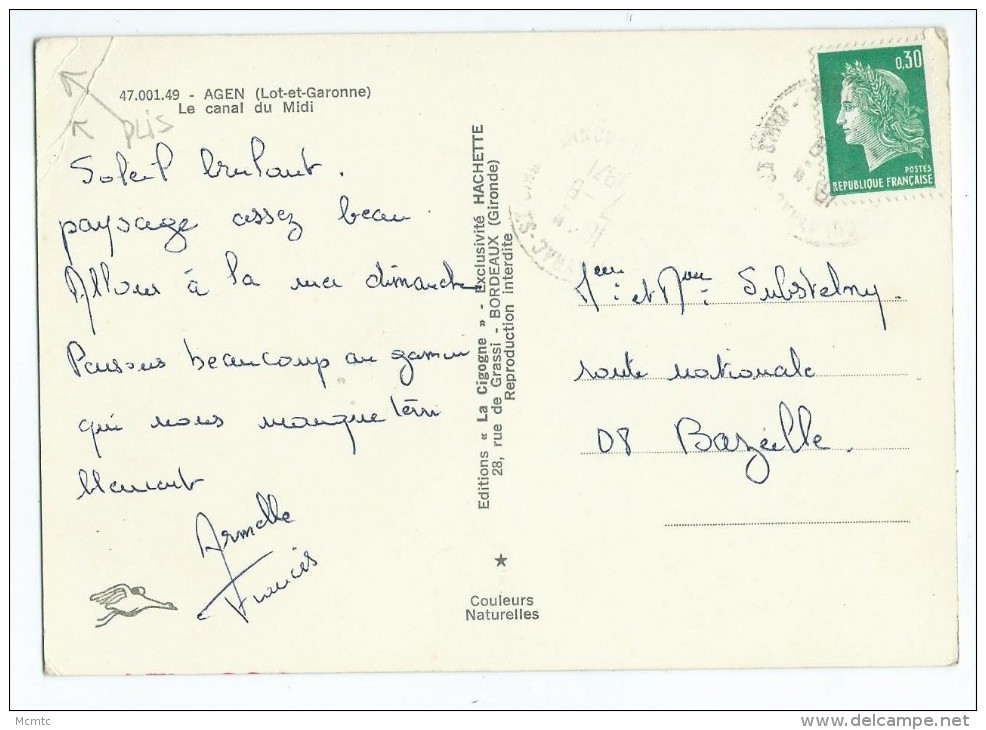 47.001.49 - AGEN (Lot-et-Garonne)
Le canal du Midi
PLIS
Soleil brulant.
paysage assez beau
Allons à la mer dimanche
Pensons beaucoup au gamin
qui nous manque terri
blement
Armelle
Francis
Editions « La Cigogne » - Exclusivité HACHETTE
28, rue de Grassi - BORDEAUX (Gironde)
Reproduction interdite
Couleurs
Naturelles
0,30
POSTES
REPUBLIQUE FRANÇAISE
1971
Mr et Mme Substelny.
route nationale
08 Bazeille.
Mcmtc
www.delcampe.net